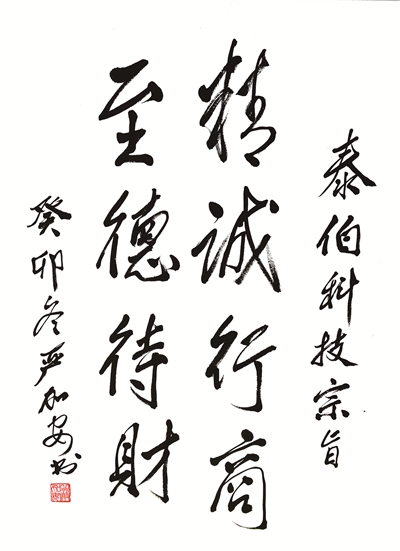 泰伯科技宗旨
精诚行商
至德待财
癸卯冬严加安书